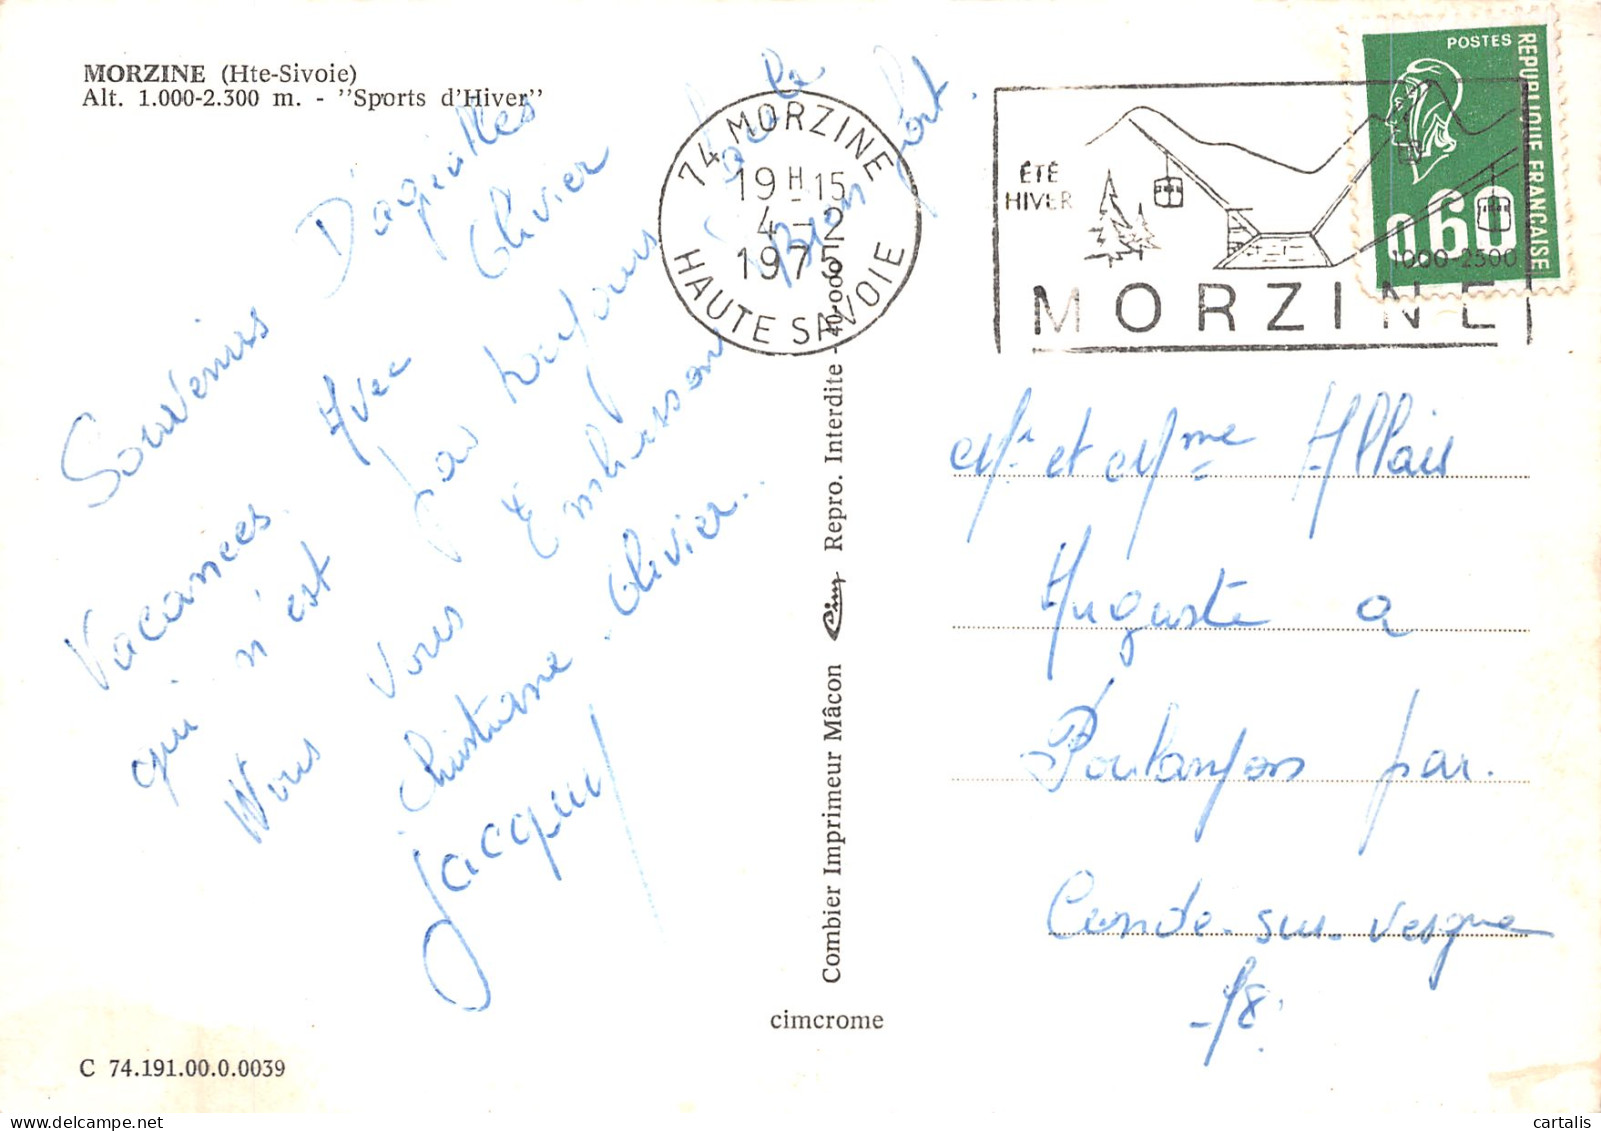 MORZINE (Hte-Sivoie)
Alt. 1.000-2.300 m. - "Sports d'Hiver"
Souvenirs D'agréables
Vacances. Avec Olivier
qui n'est pas toujours facile
Nous Vous Embrassons Bien fort.
Christiane. Olivier...
Jacques
74 MORZINE
19 H 15
4-2
1975
HAUTE SAVOIE
ÉTÉ
HIVER
1000-2500
MORZINE
POSTES
REPUBLIQUE FRANÇAISE
0,60
Mr et Mme Allais
Auguste a
par.
Conde-sur-Vesgre
78.
Combier Imprimeur Mâcon Cim Repro. Interdite -
cimcrome
C 74.191.00.0.0039
cartalis